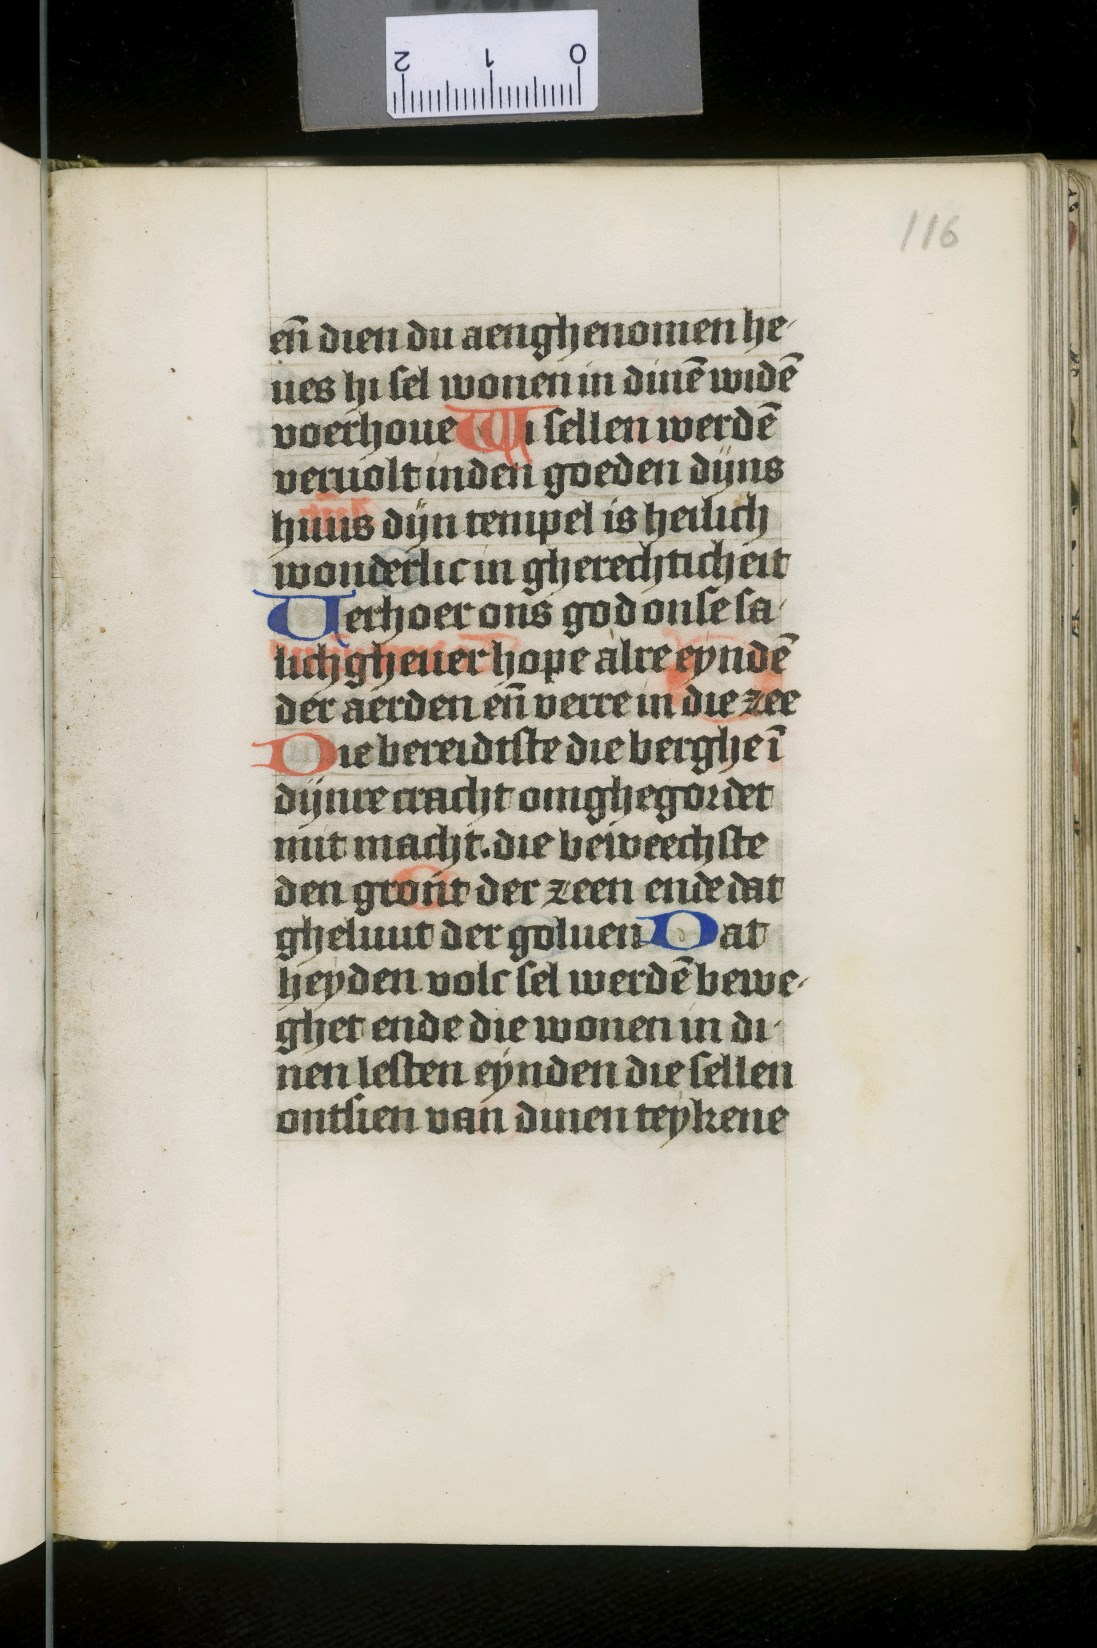 116
en̄ dien du aenghenomen he-
ues hi sel wonen in dinē widē
voerhoue Wi sellen werdē
veruolt inden goeden dijns
huus dijn tempel is heilich
wonderlic in gherechticheit
Verhoer ons god onse sa-
lichgheuer hope alre eyndē
der aerden en̄ verre in die zee
Die bereidtste die berghe ī
dijnre cracht omghegordet
mit macht. die beweechste
den gront der zeen ende dat
gheluut der goluen Dat
heyden volc sel werdē bewe-
ghet ende die wonen in di-
nen lesten eynden die sellen
ontsien van dinen teykene